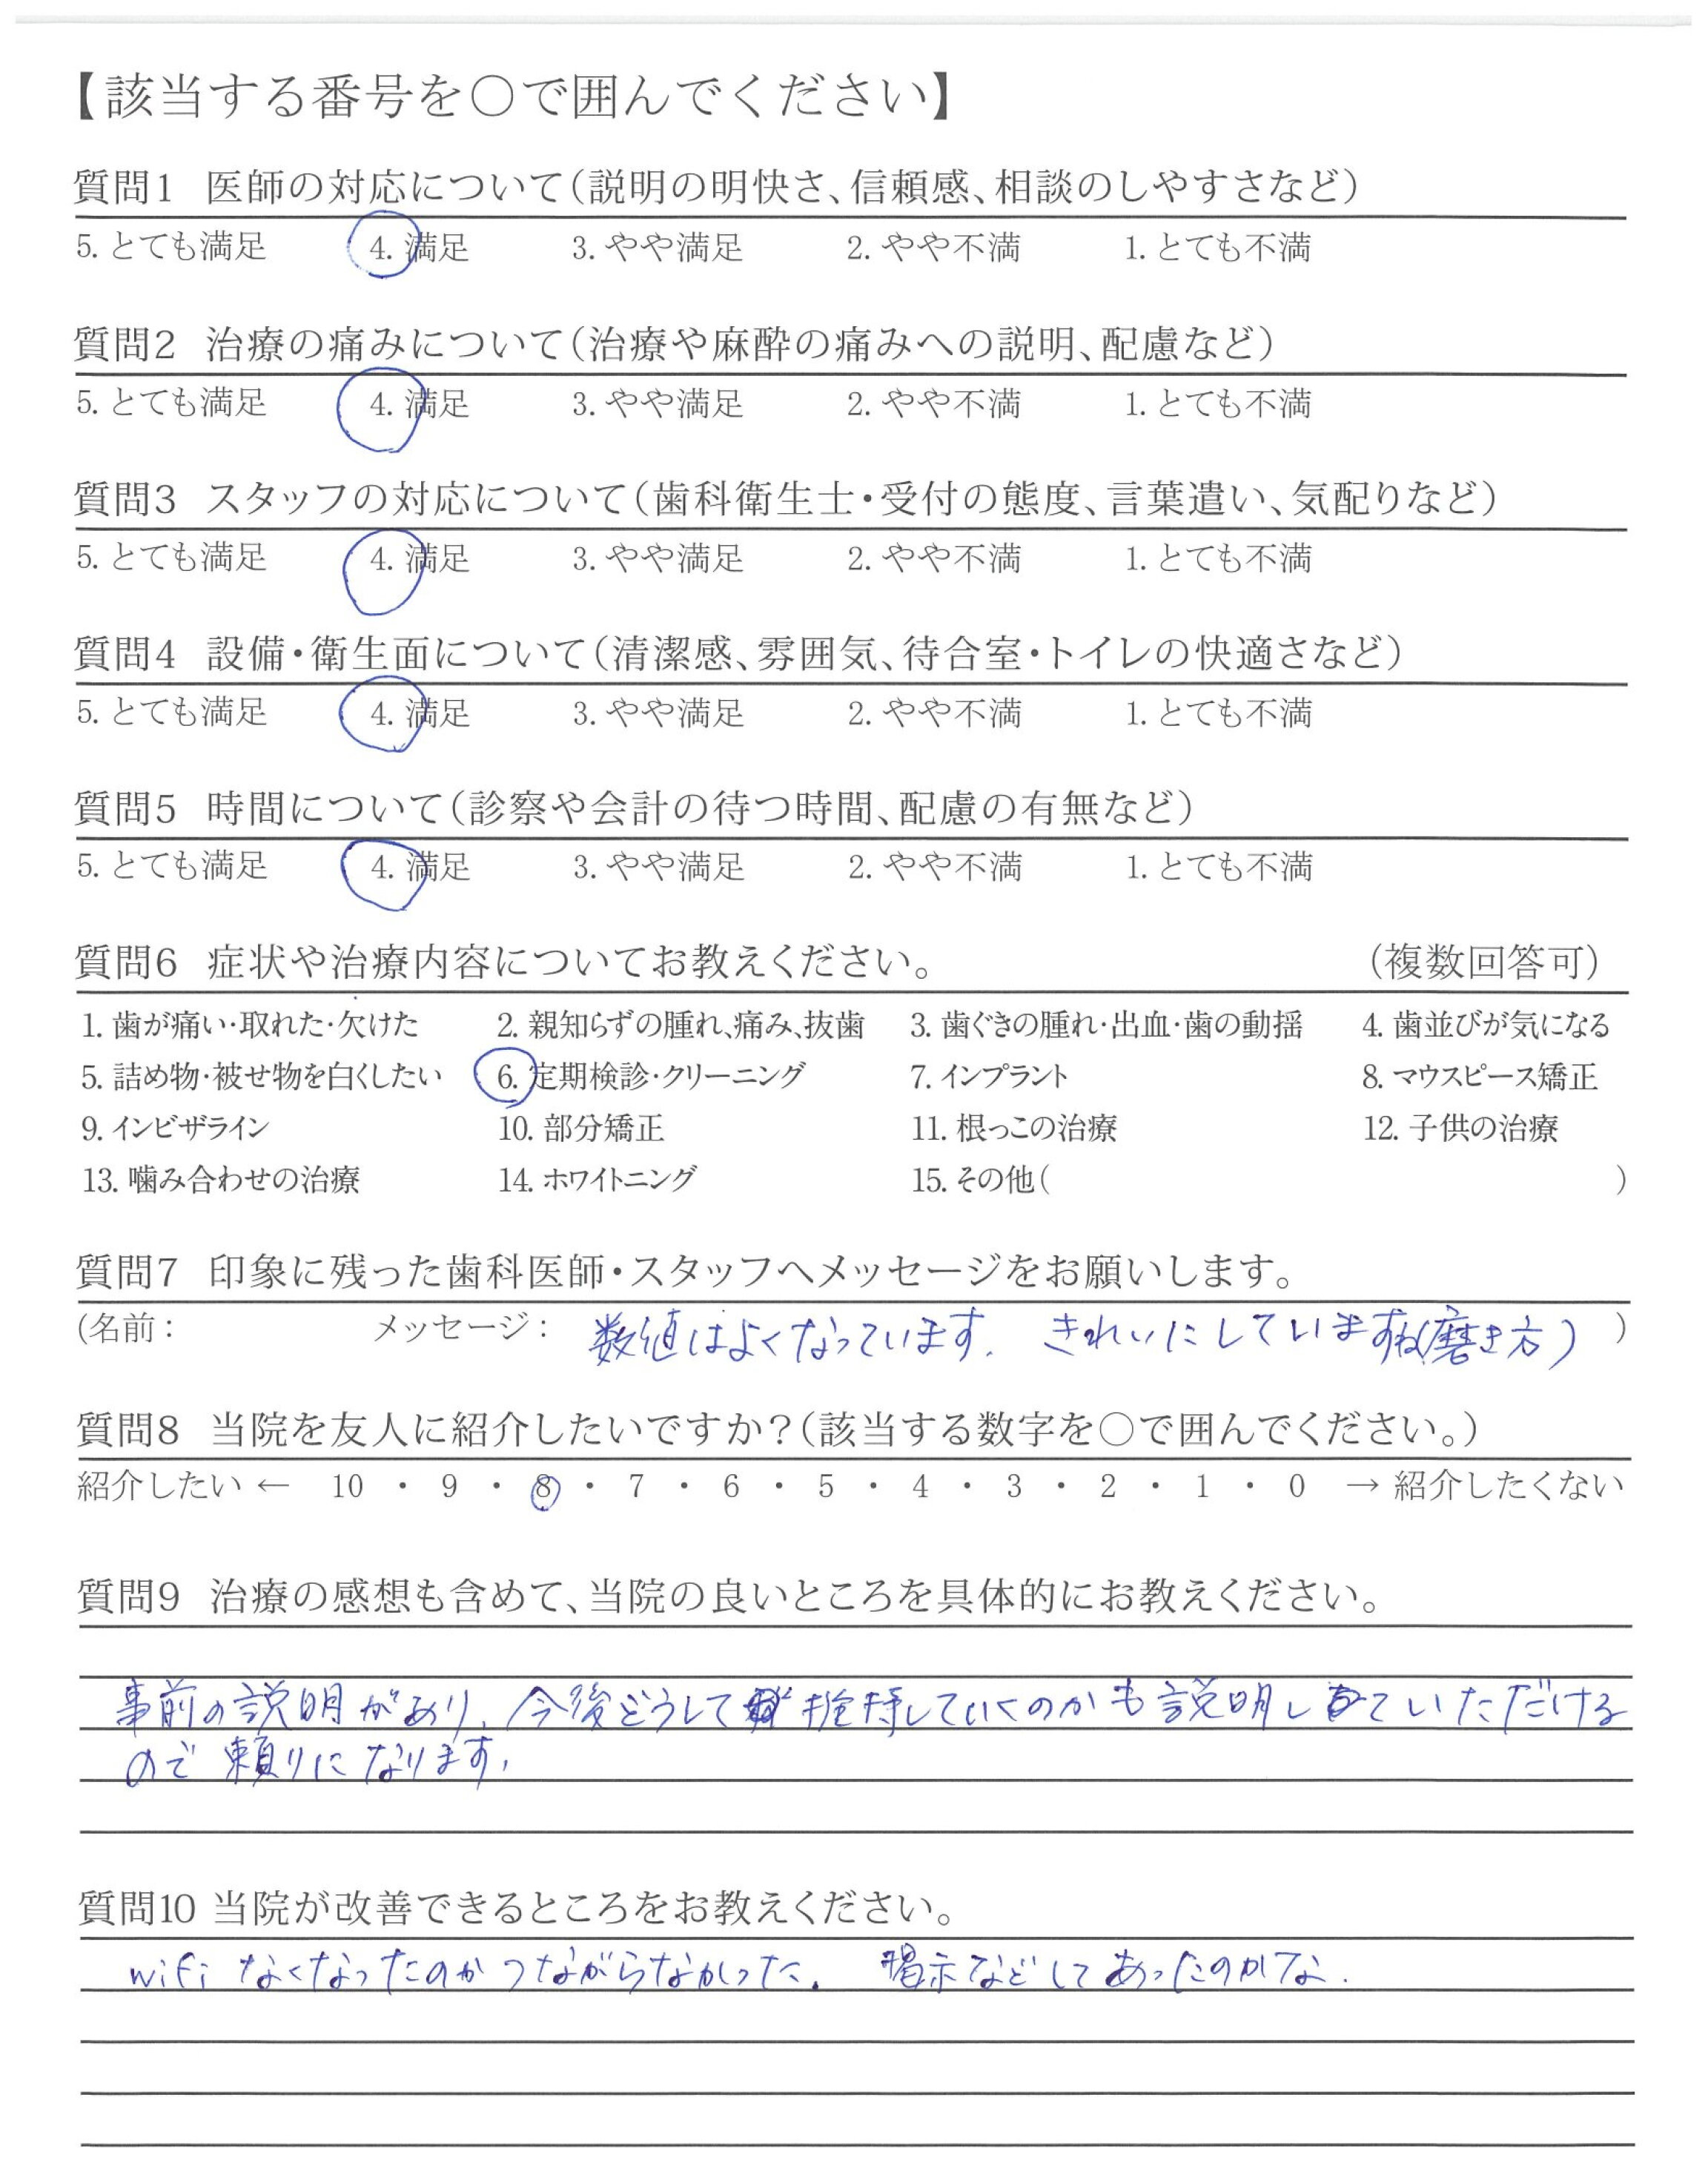 【該当する番号を○で囲んでください】
質問1 医師の対応について(説明の明快さ、信頼感、相談のしやすさなど)
5. とても満足 4. 満足 3. やや満足 2. やや不満 1. とても不満
質問2 治療の痛みについて(治療や麻酔の痛みへの説明、配慮など)
5. とても満足 4. 満足 3. やや満足 2. やや不満 1. とても不満
質問3 スタッフの対応について(歯科衛生士・受付の態度、言葉遣い、気配りなど)
5. とても満足 4. 満足 3. やや満足 2. やや不満 1. とても不満
質問4 設備・衛生面について(清潔感、雰囲気、待合室・トイレの快適さなど)
5. とても満足 4. 満足 3. やや満足 2. やや不満 1. とても不満
質問5 時間について(診察や会計の待つ時間、配慮の有無など)
5. とても満足 4. 満足 3. やや満足 2. やや不満 1. とても不満
質問6 症状や治療内容についてお教えください。 (複数回答可)
1. 歯が痛い・取れた・欠けた 2. 親知らずの腫れ、痛み、抜歯 3. 歯ぐきの腫れ・出血・歯の動揺 4. 歯並びが気になる
5. 詰め物・被せ物を白くしたい 6. 定期検診・クリーニング 7. インプラント 8. マウスピース矯正
9. インビザライン 10. 部分矯正 11. 根っこの治療 12. 子供の治療
13. 噛み合わせの治療 14. ホワイトニング 15. その他( )
質問7 印象に残った歯科医師・スタッフへメッセージをお願いします。
(名前: メッセージ: 数値はよくなっています. きれいにしていますね(磨き方) )
質問8 当院を友人に紹介したいですか?(該当する数字を○で囲んでください。)
紹介したい ← 10 ・ 9 ・ 8 ・ 7 ・ 6 ・ 5 ・ 4 ・ 3 ・ 2 ・ 1 ・ 0 → 紹介したくない
質問9 治療の感想も含めて、当院の良いところを具体的にお教えください。
事前の説明があり、今後どうして 持していくのかも説明していただける
ので頼りになります.
質問10 当院が改善できるところをお教えください。
wifi なくなったのかつながらなかった. 掲示などしてあったのかな.